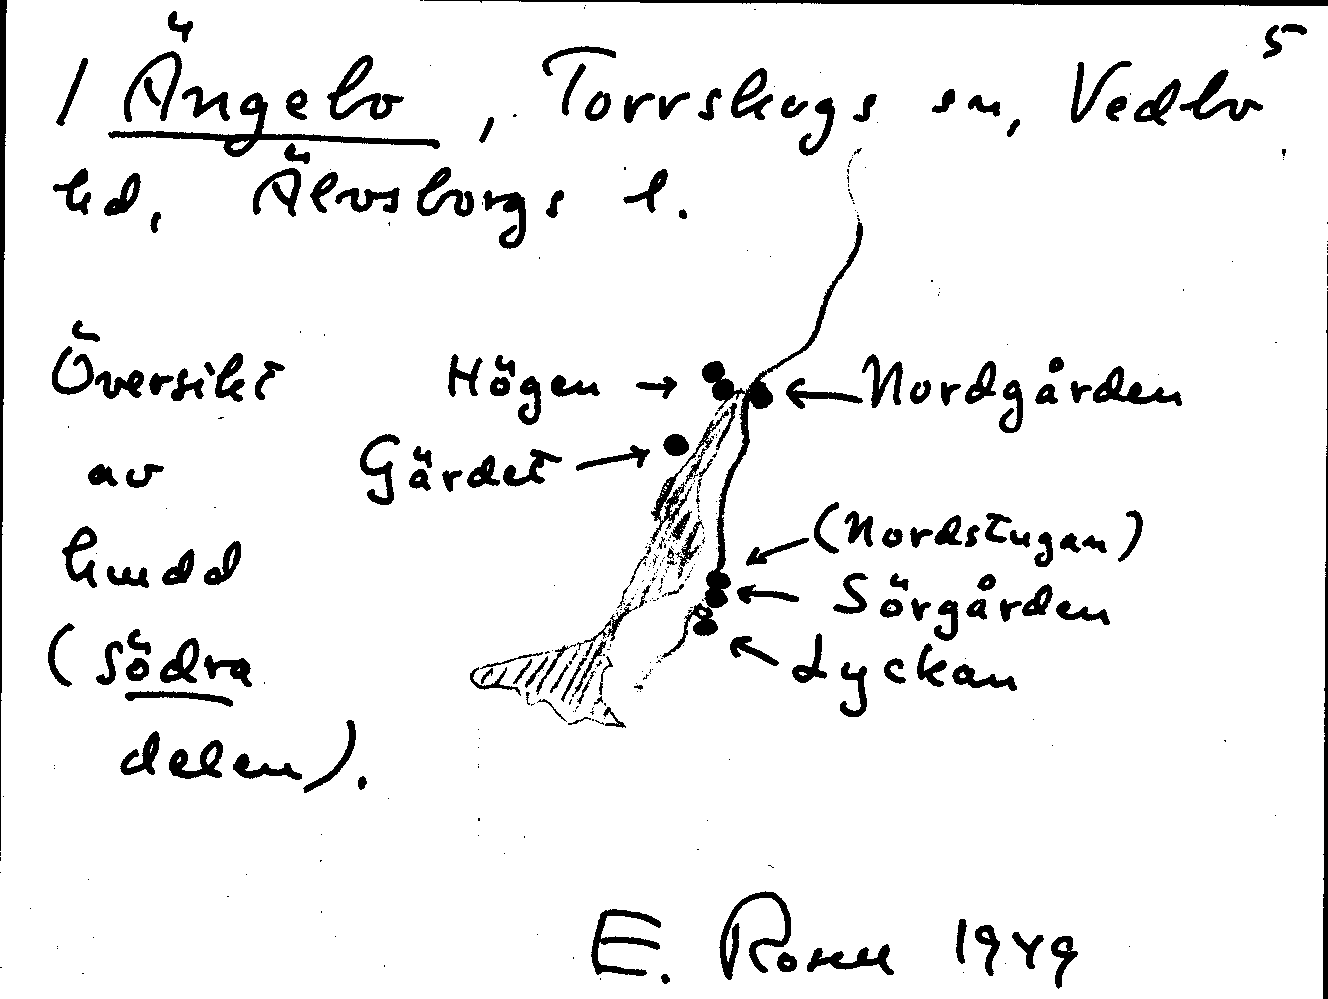 5
/ Ängebo, Torrskogs sn, Vedbo
hd, Älvsborgs l.
Översikt
av
hmdd
(södra
delen).
Högen
Nordgården
Gärdet
(Nordstugan)
Sörgården
Lyckan
E. Rosell 1949